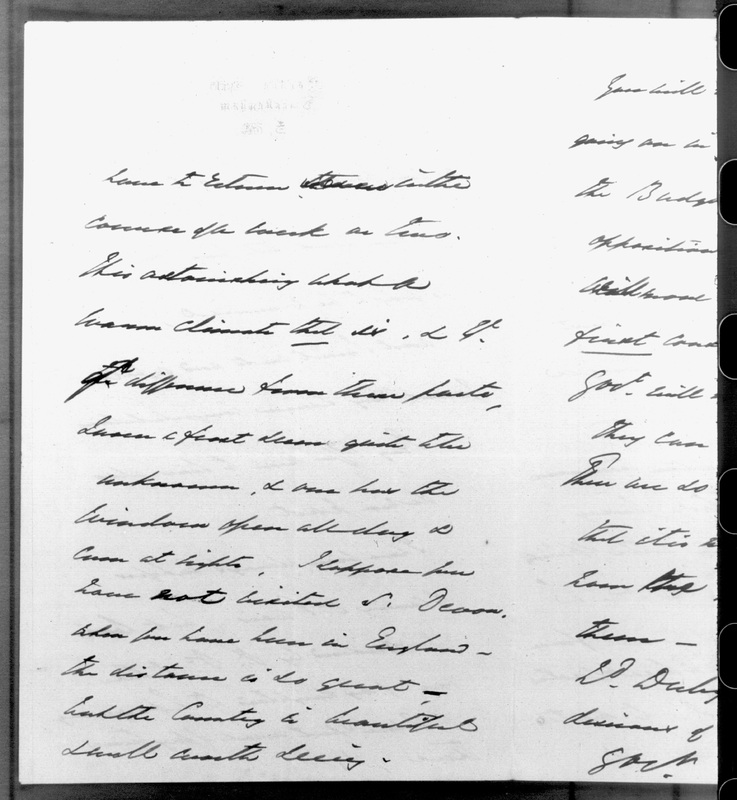 have to return in the
course of a week or two.
This astonishing what a
warm climate that is, & yt.
difference from these parts,
snow & frost seem quite
unknown, & one has the
windows open all day &
even at nights. I suppose you
have not visited S. Devon.
when you have been in England –
the distance is so great –
but the Country is beautiful
& well worth seeing.
You will
going on in
the Budge
opposition
first
Govt. will
they can
There are so
that it is
even
them –
Ld. Derby
divisions of
Govt